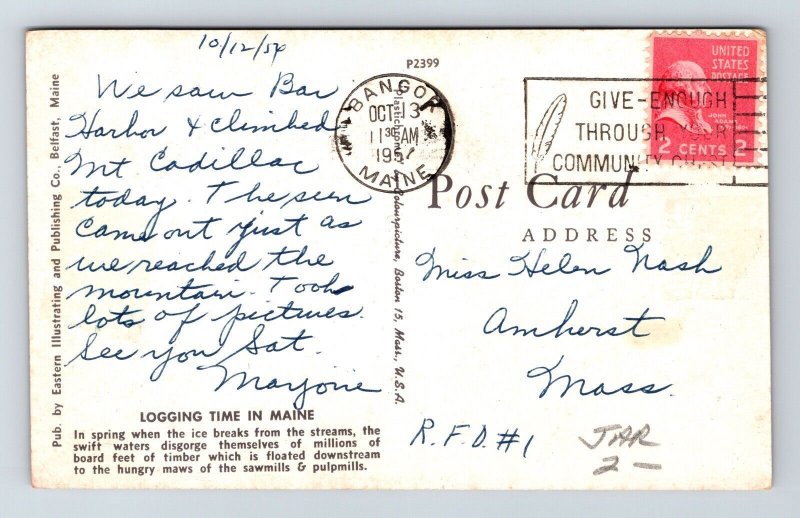 10/12/54
We saw Bar
Harbor & climbed
Mt Cadillac
today. The sun
came out just as
we reached the
mountain. Took
lots of pictures.
See you Sat.
Marjorie
LOGGING TIME IN MAINE
In spring when the ice breaks from the streams, the
swift waters disgorge themselves of millions of
board feet of timber which is floated downstream
to the hungry maws of the sawmills & pulpmills.
Pub. by Eastern Illustrating and Publishing Co., Belfast, Maine
P2399
BANGOR
OCT 13
11 30 AM
MAINE
GIVE-ENOUGH
THROUGH YOUR
COMMUNITY CHEST
UNITED
STATES
POSTAGE
JOHN
ADAMS
2 CENTS 2
Colourpicture, Boston 15, Mass., U.S.A.
Post Card
ADDRESS
Miss Helen Nash
Amherst
Mass.
R.F.D. #1
JAR
2 —